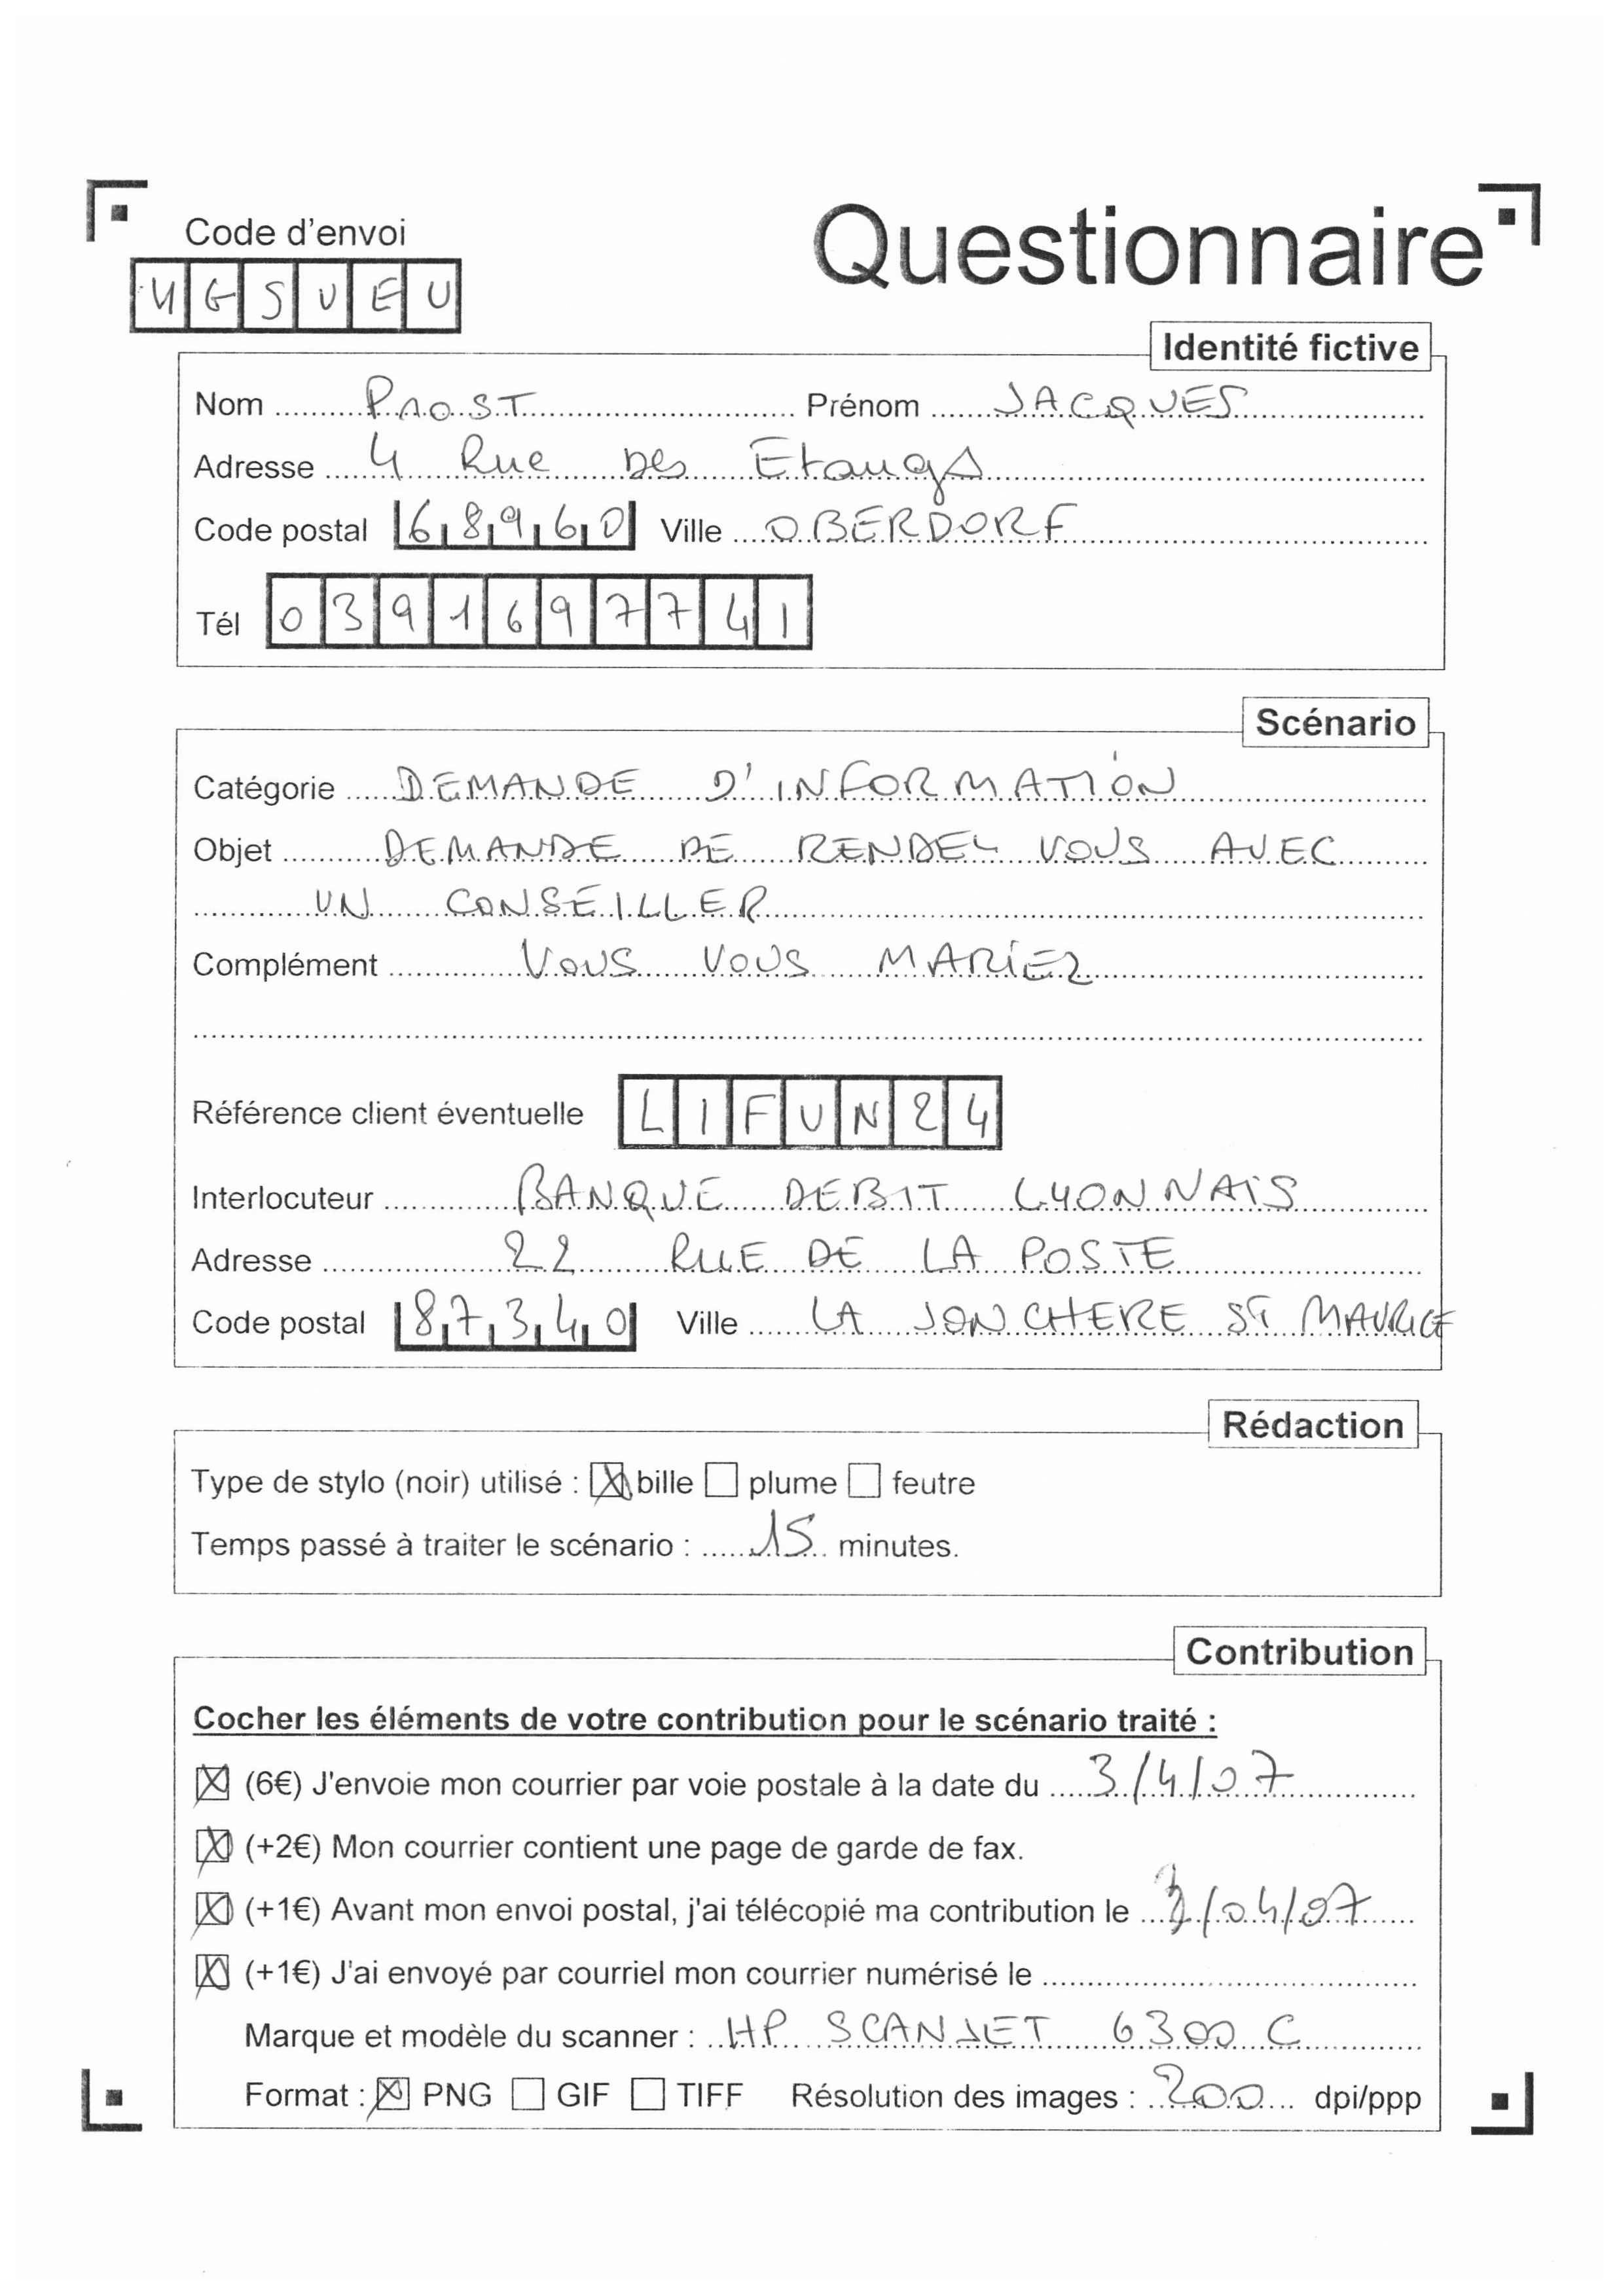 Code d'envoi
Questionnaire
4GSVEU
Identité fictive
Nom PROST Prénom JACQUES
Adresse 4 Rue Des Etangs
Code postal 68960 Ville OBERDORF
Tél 0391697741
Scénario
Catégorie DEMANDE D'INFORMATION
Objet DEMANDE DE RENDEZ VOUS AVEC
UN CONSEILLER
Complément VOUS VOUS MARIEZ
Référence client éventuelle LIFUN24
Interlocuteur BANQUE DEBIT LYONNAIS
Adresse 22 RUE DE LA POSTE
Code postal 87340 Ville LA JONCHERE ST MAURICE
Rédaction
Type de stylo (noir) utilisé : bille plume feutre
Temps passé à traiter le scénario : 15 minutes.
Contribution
Cocher les éléments de votre contribution pour le scénario traité :
(6€) J'envoie mon courrier par voie postale à la date du 3/4/07
(+2€) Mon courrier contient une page de garde de fax.
(+1€) Avant mon envoi postal, j'ai télécopié ma contribution le 3/04/07
(+1€) J'ai envoyé par courriel mon courrier numérisé le
Marque et modèle du scanner : HP SCANJET 6300 C
Format : PNG GIF TIFF Résolution des images : 200 dpi/ppp